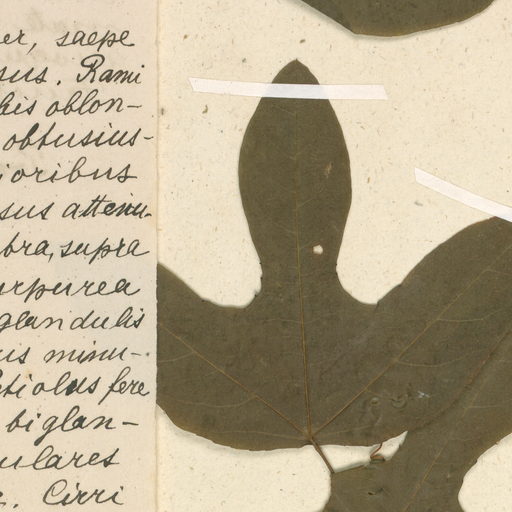 er, saepe
sus. Rami
oblon-
obtusius-
ioribus
sus attenu-
bra, supra
urpurea
glandulis
is minu-
etiolus fere
biglan-
ulares
Cirri